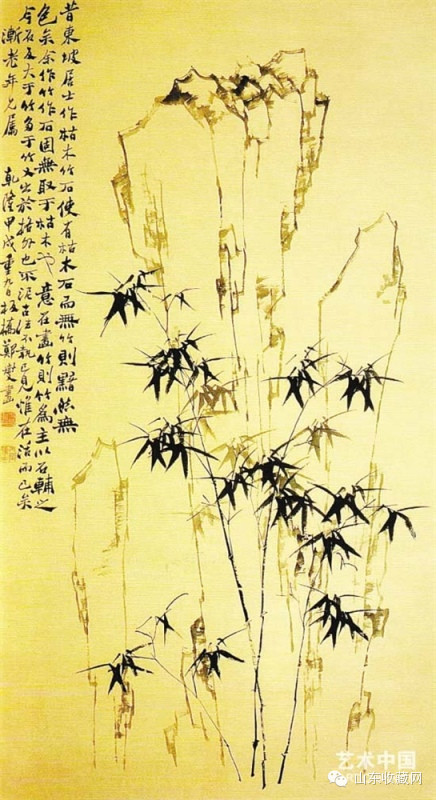 昔東坡居士作枯木竹石使有枯木石而無竹則黯然無
色矣余作竹作石固無取于枯木也意在畫竹則竹爲主以石輔之
今石反大于竹多于竹又出於格外也不泥古法不執己見惟在活而已矣
漸老年兄屬 乾隆甲戌重九日板橋鄭燮畫
艺术中国
山东收藏网